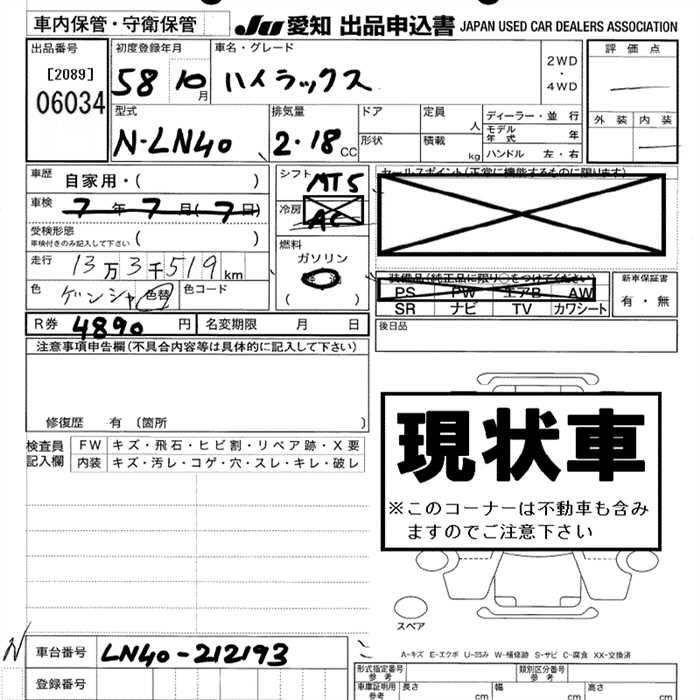 車内保管・守衛保管 JU 愛知 出品申込書 JAPAN USED CAR DEALERS ASSOCIATION
出品番号 初度登録年月 車名・グレード 評価点
[2089] 58 10月 ハイラックス 2WD・4WD
06034
外装 内装
型式 排気量 ドア 定員 人 ディーラー・並行
N-LN40 2.18 CC 形状 積載 kg モデル年式 年
ハンドル 左・右
車歴 自家用・( ) シフト MT5 セールスポイント(正常に機能するものに限ります)
車検 7年7月(7日) 冷房 AC
受検形態 車検付きのみ記入して下さい ( ) 燃料
走行 13万3千519km ガソリン
色 ゲンシャ 色替 色コード ( )
装備品(純正品に限り○をつけてください) 新車保証書
PS PW エアB AW 有・無
SR ナビ TV カワシート
R券 4890円 名変期限 月 日 後日品
注意事項申告欄(不具合内容等は具体的に記入して下さい)
修復歴 有 〔箇所 〕
検査員記入欄 FW キズ・飛石・ヒビ割・リペア跡・X要
内装 キズ・汚レ・コゲ・穴・スレ・キレ・破レ
現状車
※このコーナーは不動車も含み
ますのでご注意下さい
スペア
A-キズ E-エクボ U-凹み W-補修跡 S-サビ C-腐食 XX-交換済
N 車台番号 LN40-212193
登録番号
形式指定番号 参考 類別区分番号 参考
車庫証明用 参考 長さ cm 幅 cm 高さ cm